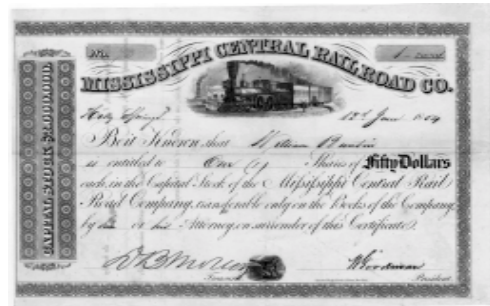 No. 1 
MISSISSIPPI CENTRAL RAILROAD CO.
Holly Springs 12th June
Be it Known, that William
is entitled to One (1) Shares of Fifty Dollars
each, in the Capital Stock of the Mississippi Central Rail
Road Company, transferable only on the Books of the Company
by his or his Attorney, on surrender of this Certificate.
President
CAPITAL STOCK